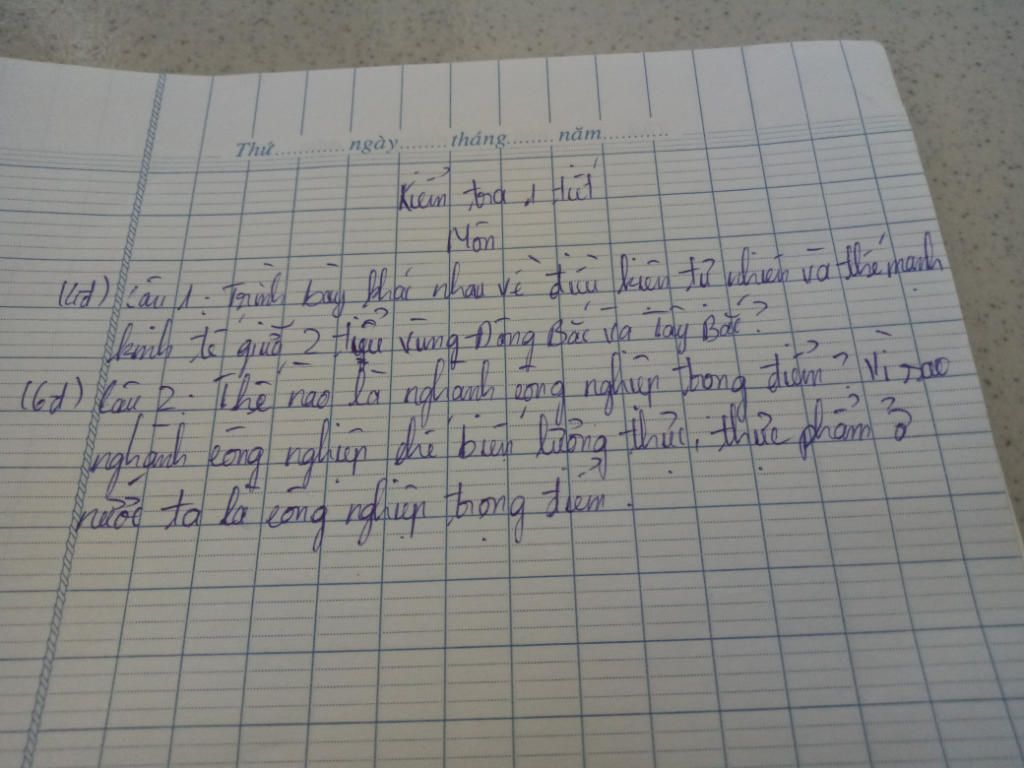 Thứ............ngày.........tháng........năm............
Kiểm tra 1 tiết
Môn
(4đ) Câu 1: Trình bày khác nhau về điều kiện tự nhiên và thế mạnh
kinh tế giữa 2 tiểu vùng Đông Bắc và Tây Bắc?
(6đ) Câu 2: Thế nào là nghành công nghiệp trọng điểm? Vì sao
nghành công nghiệp chế biến lương thực, thực phẩm ở
nước ta là công nghiệp trọng điểm.